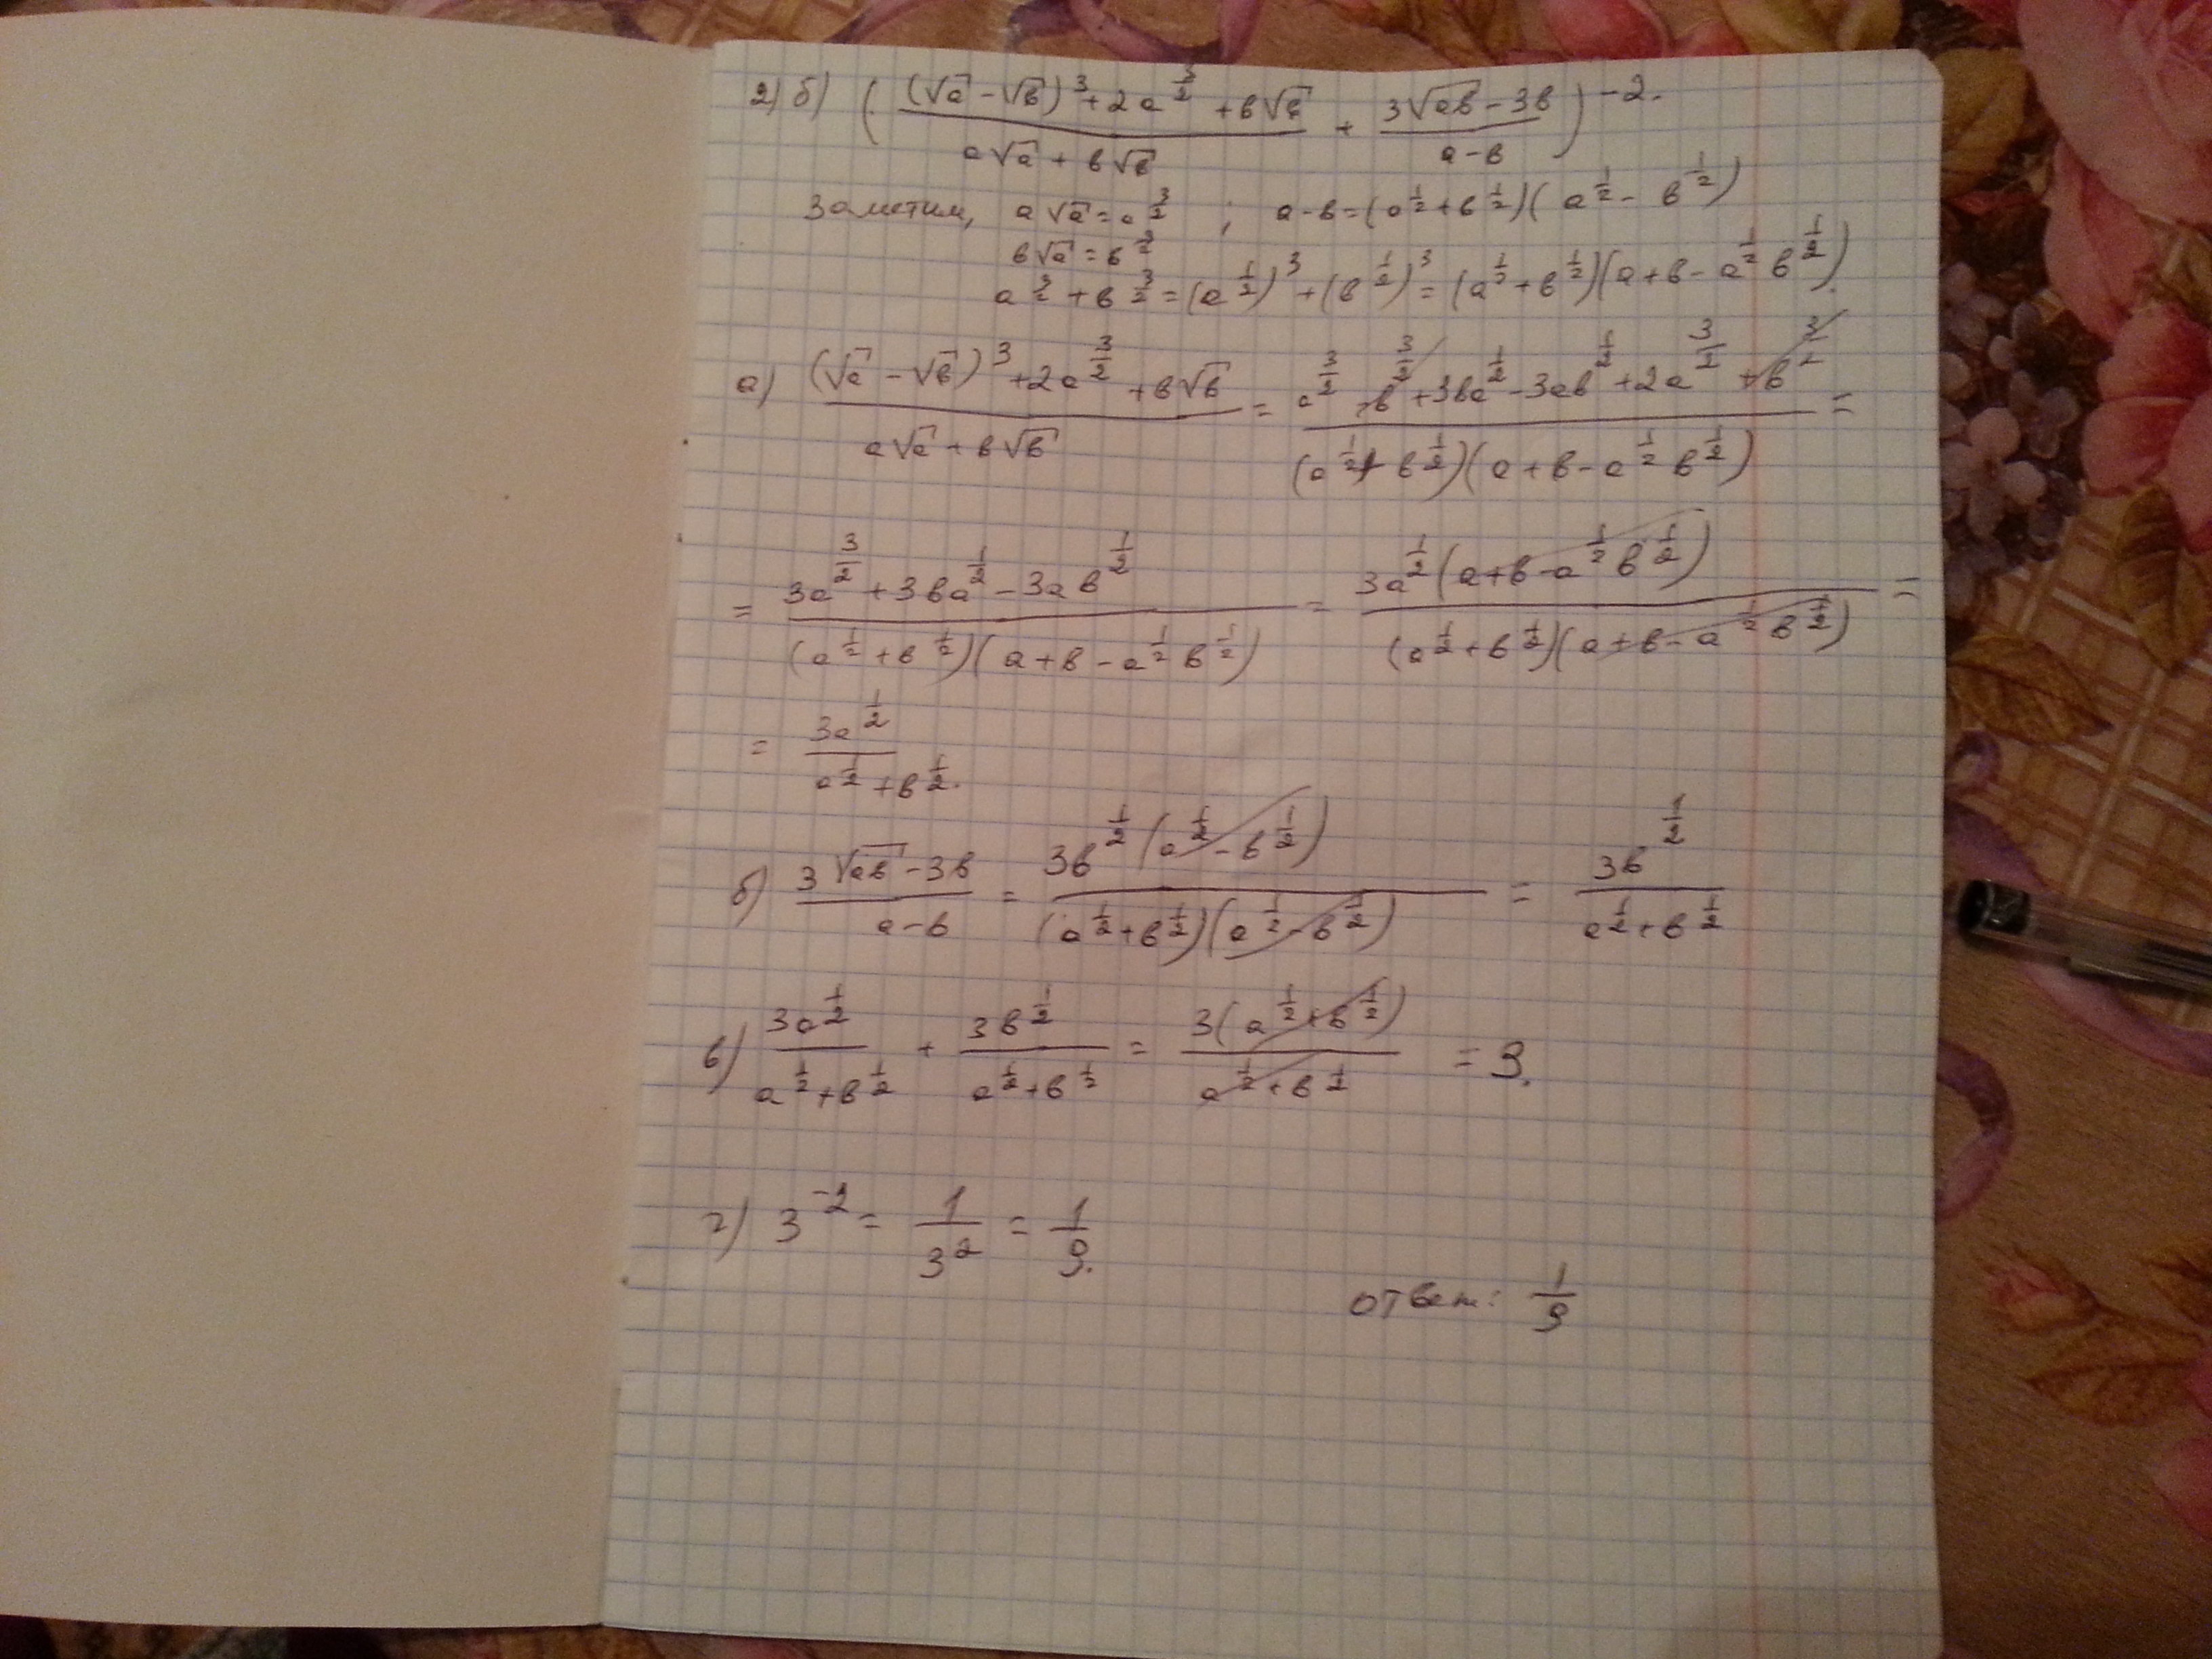 2) б) (((√a - √в)³ + 2a^(3/2) + в√в)/(a√a + в√в) + (3√aв - 3в)/(a-в))^(-2).
Заметим, a√a = a^(3/2) ; a-в = (a^(1/2) + в^(1/2))(a^(1/2) - в^(1/2))
в√a = в^(3/2)
a^(3/2) + в^(3/2) = (a^(1/2))³ + (в^(1/2))³ = (a^(1/2) + в^(1/2))(a + в - a^(1/2) в^(1/2)).
а) ((√a - √в)³ + 2a^(3/2) + в√в)/(a√a + в√в) = (a^(3/2) - в^(3/2) + 3вa^(1/2) - 3aв^(1/2) + 2a^(3/2) + в^(3/2))/((a^(1/2) + в^(1/2))(a + в - a^(1/2) в^(1/2))) =
= (3a^(3/2) + 3вa^(1/2) - 3aв^(1/2))/((a^(1/2) + в^(1/2))(a + в - a^(1/2) в^(1/2))) = (3a^(1/2)(a + в - a^(1/2) в^(1/2)))/((a^(1/2) + в^(1/2))(a + в - a^(1/2) в^(1/2))) =
= (3a^(1/2))/(a^(1/2) + в^(1/2)).
б) (3√aв - 3в)/(a-в) = (3в^(1/2)(a^(1/2) - в^(1/2)))/((a^(1/2) + в^(1/2))(a^(1/2) - в^(1/2))) = (3в^(1/2))/(a^(1/2) + в^(1/2))
в) (3a^(1/2))/(a^(1/2) + в^(1/2)) + (3в^(1/2))/(a^(1/2) + в^(1/2)) = (3(a^(1/2) + в^(1/2)))/(a^(1/2) + в^(1/2)) = 3.
г) 3^(-2) = 1/3² = 1/9.
ответ: 1/9